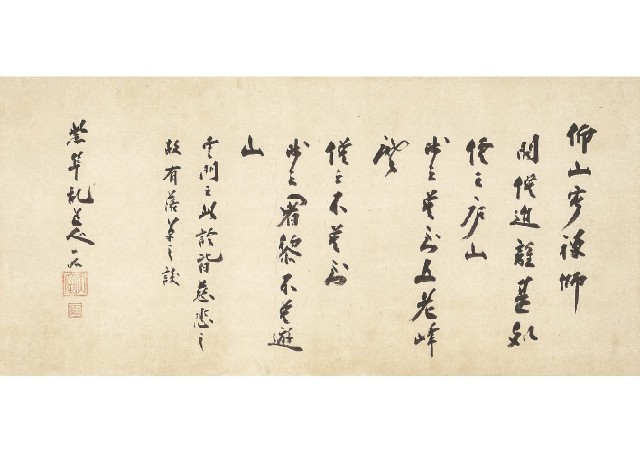 仰山寂禅師
問僧近離甚処
僧云庐山
師云曾到五老峰
麼
僧云不曾到
師云闍黎不曾遊
山
雲門云此語皆慈悲之
故有落草之談